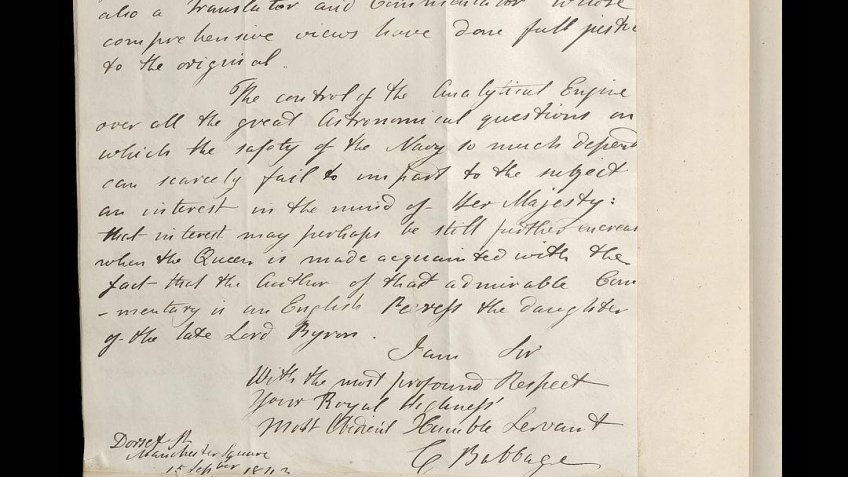 also a Translator and Commentator whose
comprehensive views have done full justi
to the original.
The control of the Analytical Engine
over all the great Astronomical questions on
which the safety of the Navy so much depend
can scarcely fail to impart to the subject
an interest in the mind of Her Majesty:
that interest may perhaps be still further increas
when the Queen is made acquainted with the
fact that the Author of that admirable Com
-mentary is an English Peeress the daughter
of the late Lord Byron.
I am Sir
With the most profound Respect
Your Royal Highness'
Most Obedient Humble Servant
C Babbage
Dorset St
Manchester Square
15 Septber 1843